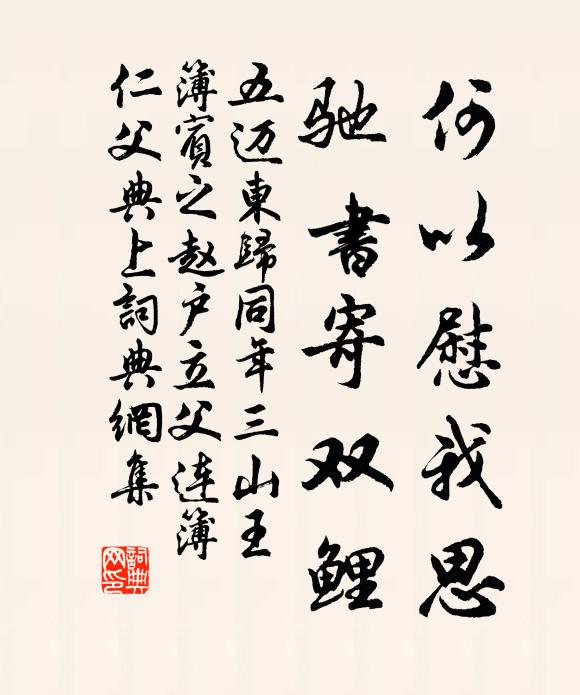 何以慰我思
驰書寄双鲤
五迈東歸同年三山王
簿賓之赵户立父连簿
仁父典上詞典網集
詞典网印